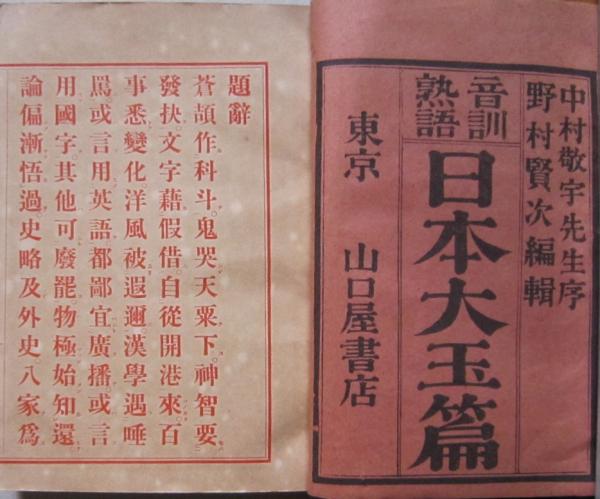 中村敬宇先生序
野村賢次編輯
音訓
熟語
日本大玉篇
東京 山口屋書店
題辭
蒼頡作科斗。鬼哭天粟下。神智要
發抉。文字藉假借。自從開港來。百
事悉變化。洋風被遐邇。漢學遇唾
罵。或言用英語。都鄙宜廣播。或言
用國字。其他可廢罷。物極始知還。
論偏漸悟過。史略及外史。八家爲